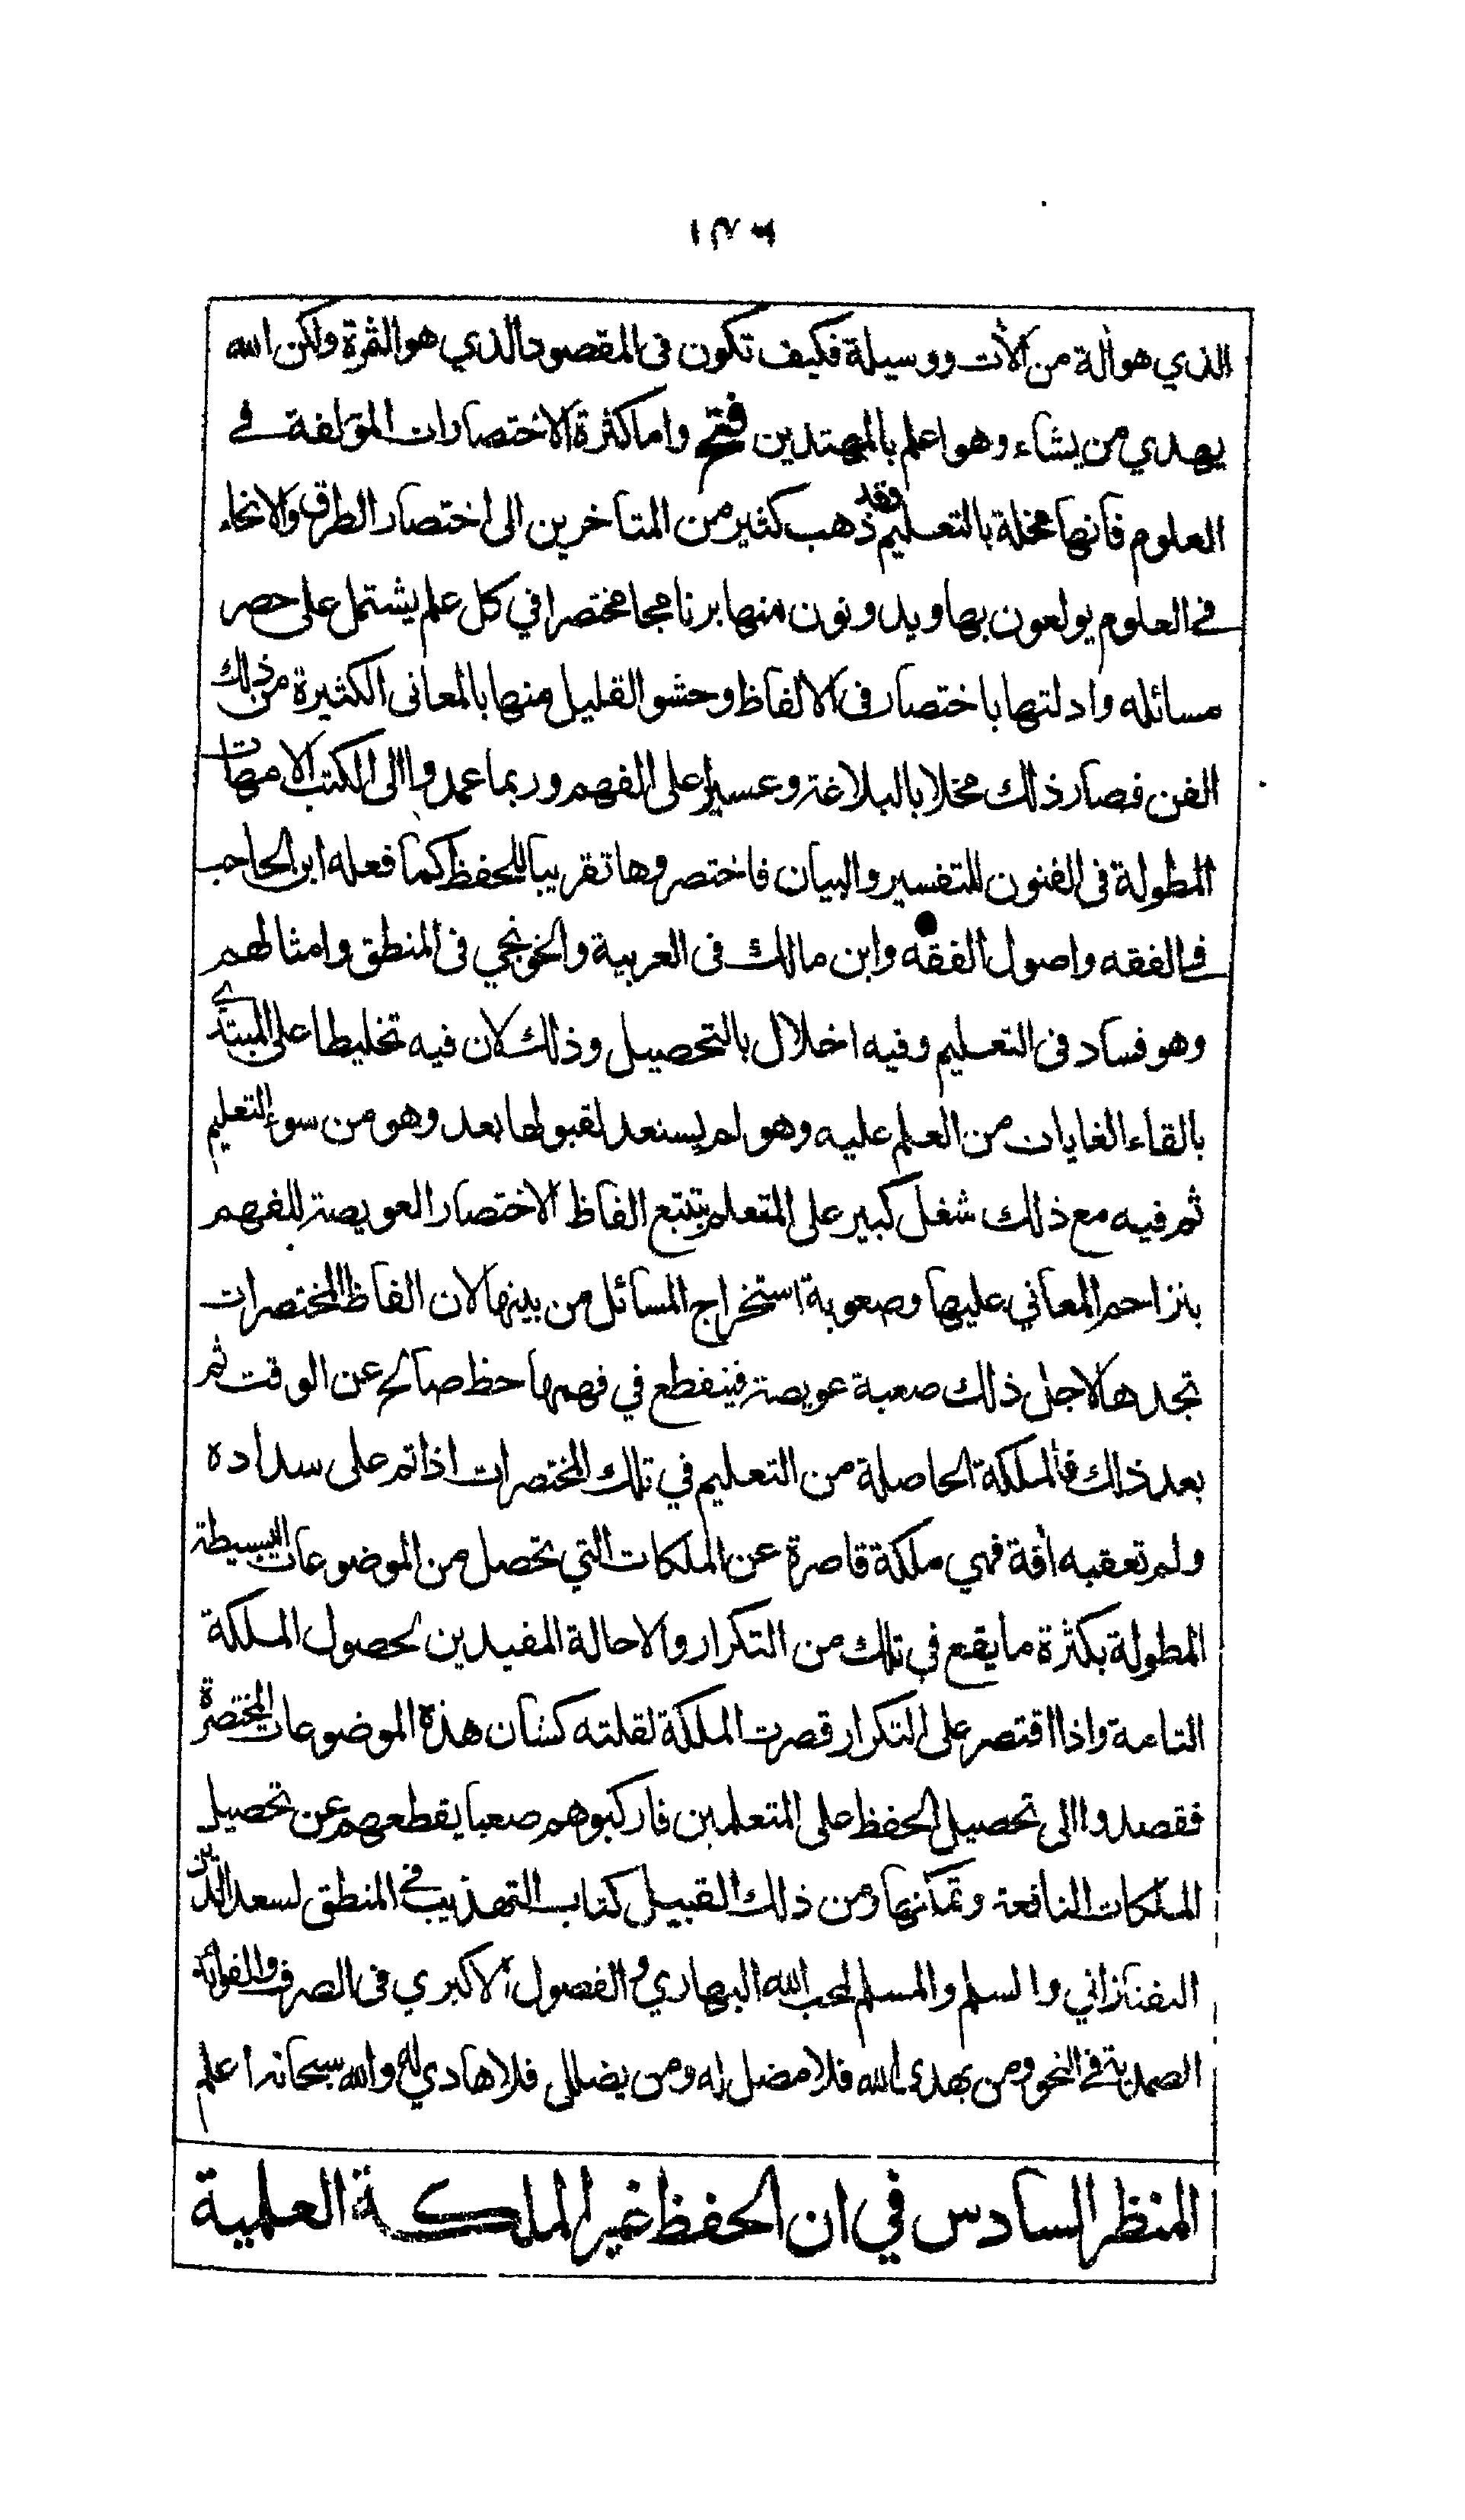 الذي هو الة من الأت ووسيلة فكيف تكون فى المقصود الذي هو الثمرة ولكن الله
يهدي من يشاء وهو اعلم بالمهتدين فتح واما كثرة الاختصارات المؤلفة في
العلوم فانها مخلة بالتعليم فقد ذهب كثير من المتاخرين الى اختصار الطرق والانحاء
في العلوم يولعون بها ويدونون منها برنامجا مختصرا في كل علم يشتمل على حصر
مسائله وادلتها باختصار فى الالفاظ وحشو القليل منها بالمعانى الكثيرة من ذلك
الفن فصار ذلك مخلا بالبلاغة وعسيرا على الفهم وربما عمدوا الى الكتب الامهات
المطولة فى الفنون للتفسير والبيان فاختصروها تقريبا للحفظ كما فعله ابن الحاجب
في الفقه واصول الفقه وابن مالك فى العربية والخونجي فى المنطق وامثالهم
وهو فساد فى التعليم وفيه اخلال بالتحصيل وذلك لان فيه تخليطا على المبتدي
بالقاء الغايات من العلم عليه وهو لم يستعد لقبولها بعد وهو من سوء التعليم
ثم فيه مع ذلك شغل كبير على المتعلم بتتبع الفاظ الاختصار العويصة للفهم
بتزاحم المعاني عليها وصعوبة استخراج المسائل من بينها لان الفاظ المختصرات
تجدها لاجل ذلك صعبة عويصة فينقطع في فهمها حظ صالح عن الوقت ثم
بعد ذلك فالملكة الحاصلة من التعليم في تلك المختصرات اذا تم على سداده
ولم تعقبه أفة فهي ملكة قاصرة عن الملكات التي تحصل من الموضوعات البسيطة
المطولة بكثرة ما يقع في تلك من التكرار والاحالة المفيدين لحصول الملكة
التامة واذا اقتصر على التكرار قصرت الملكة لقلته كشان هذه الموضوعات المختصرة
فقصدوا الى تحصيل الحفظ على المتعلمين فاركبوهم صعبا يقطعهم عن تحصيل
الملكات النافعة وتمكنها ومن ذلك القبيل كتاب التهذيب في المنطق لسعد الدين
التفتازاني والسلم والمسلم لمحب الله البهاري والفصول الاكبري فى الصرف والفوائد
الصمدية في النحو ومن يهدي الله فلا مضل له ومن يضلل فلا هادي له والله سبحانه اعلم
المنظر السادس في ان الحفظ غير الملكة العلمية